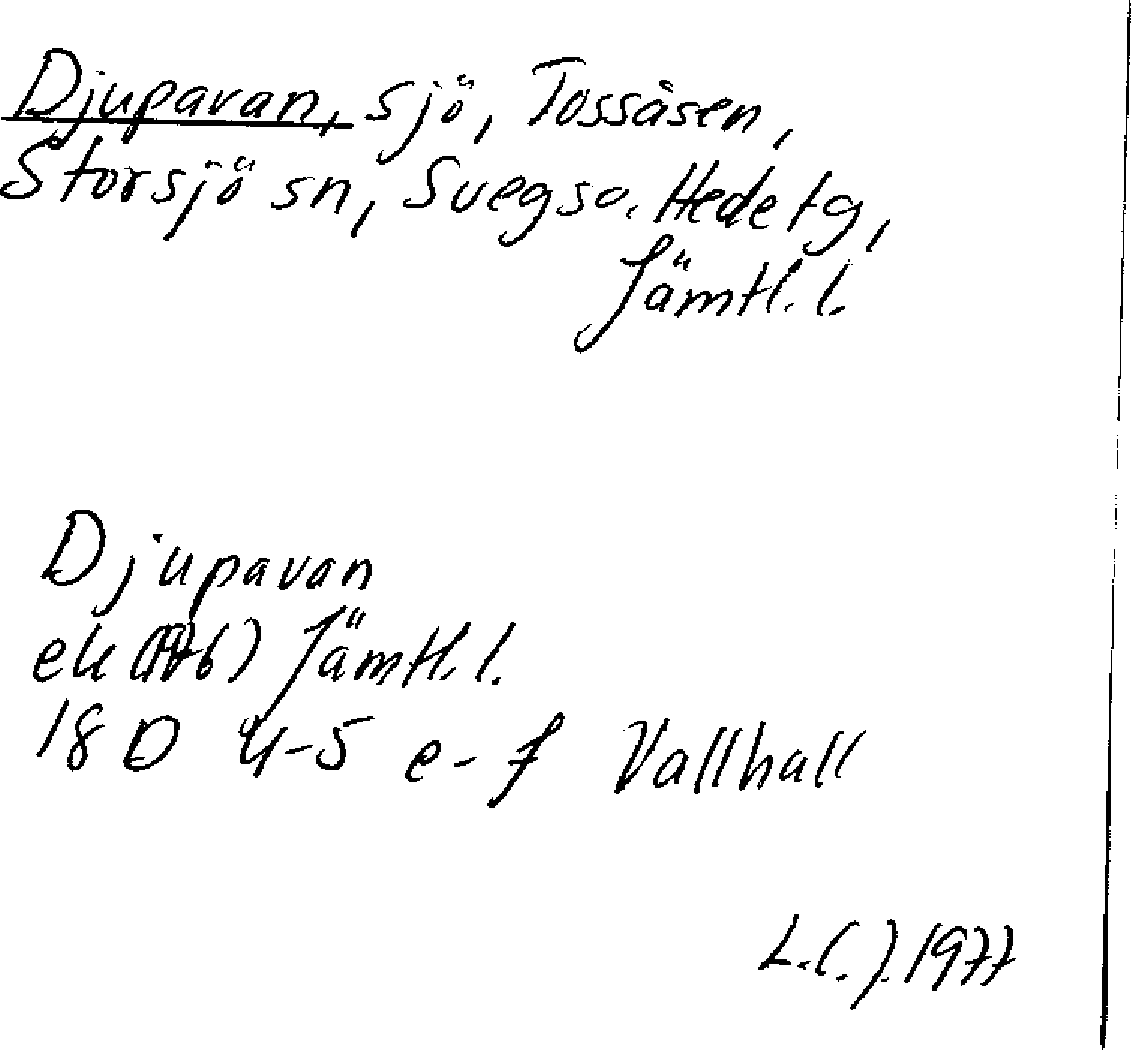 Djupavan, sjö, Tossåsen,
Storsjö sn, Svegs o. Hede tg,
Jämtl. l.
Djupavan
ek (1976) Jämtl. l.
18 D 4-5 e-f Vallhall
L.C.J. 1977